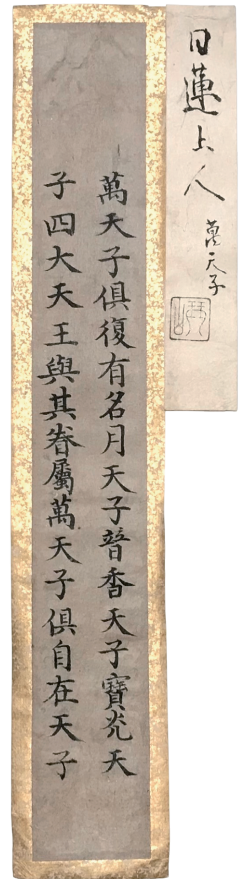 日蓮上人
萬天子
萬天子俱復有名月天子普香天子寶光天
子四大天王與其眷屬萬天子俱自在天子